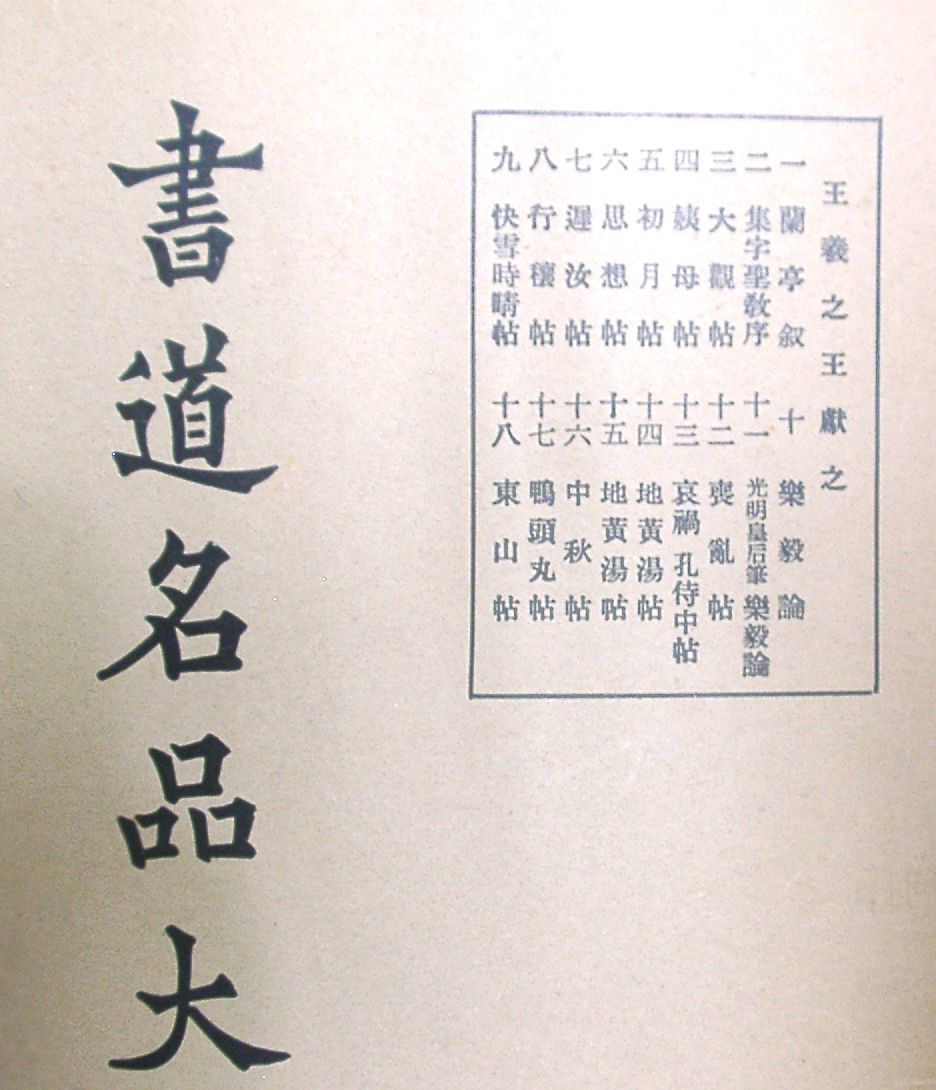 王羲之王獻之
一 蘭亭叙 十 樂毅論
二 集字聖敎序 十一 光明皇后筆 樂毅論
三 大觀帖 十二 喪亂帖
四 姨母帖 十三 哀禍 孔侍中帖
五 初月帖 十四 地黃湯帖
六 思想帖 十五 地黃湯帖
七 遲汝帖 十六 中秋帖
八 行穰帖 十七 鴨頭丸帖
九 快雪時晴帖 十八 東山帖
書道名品大